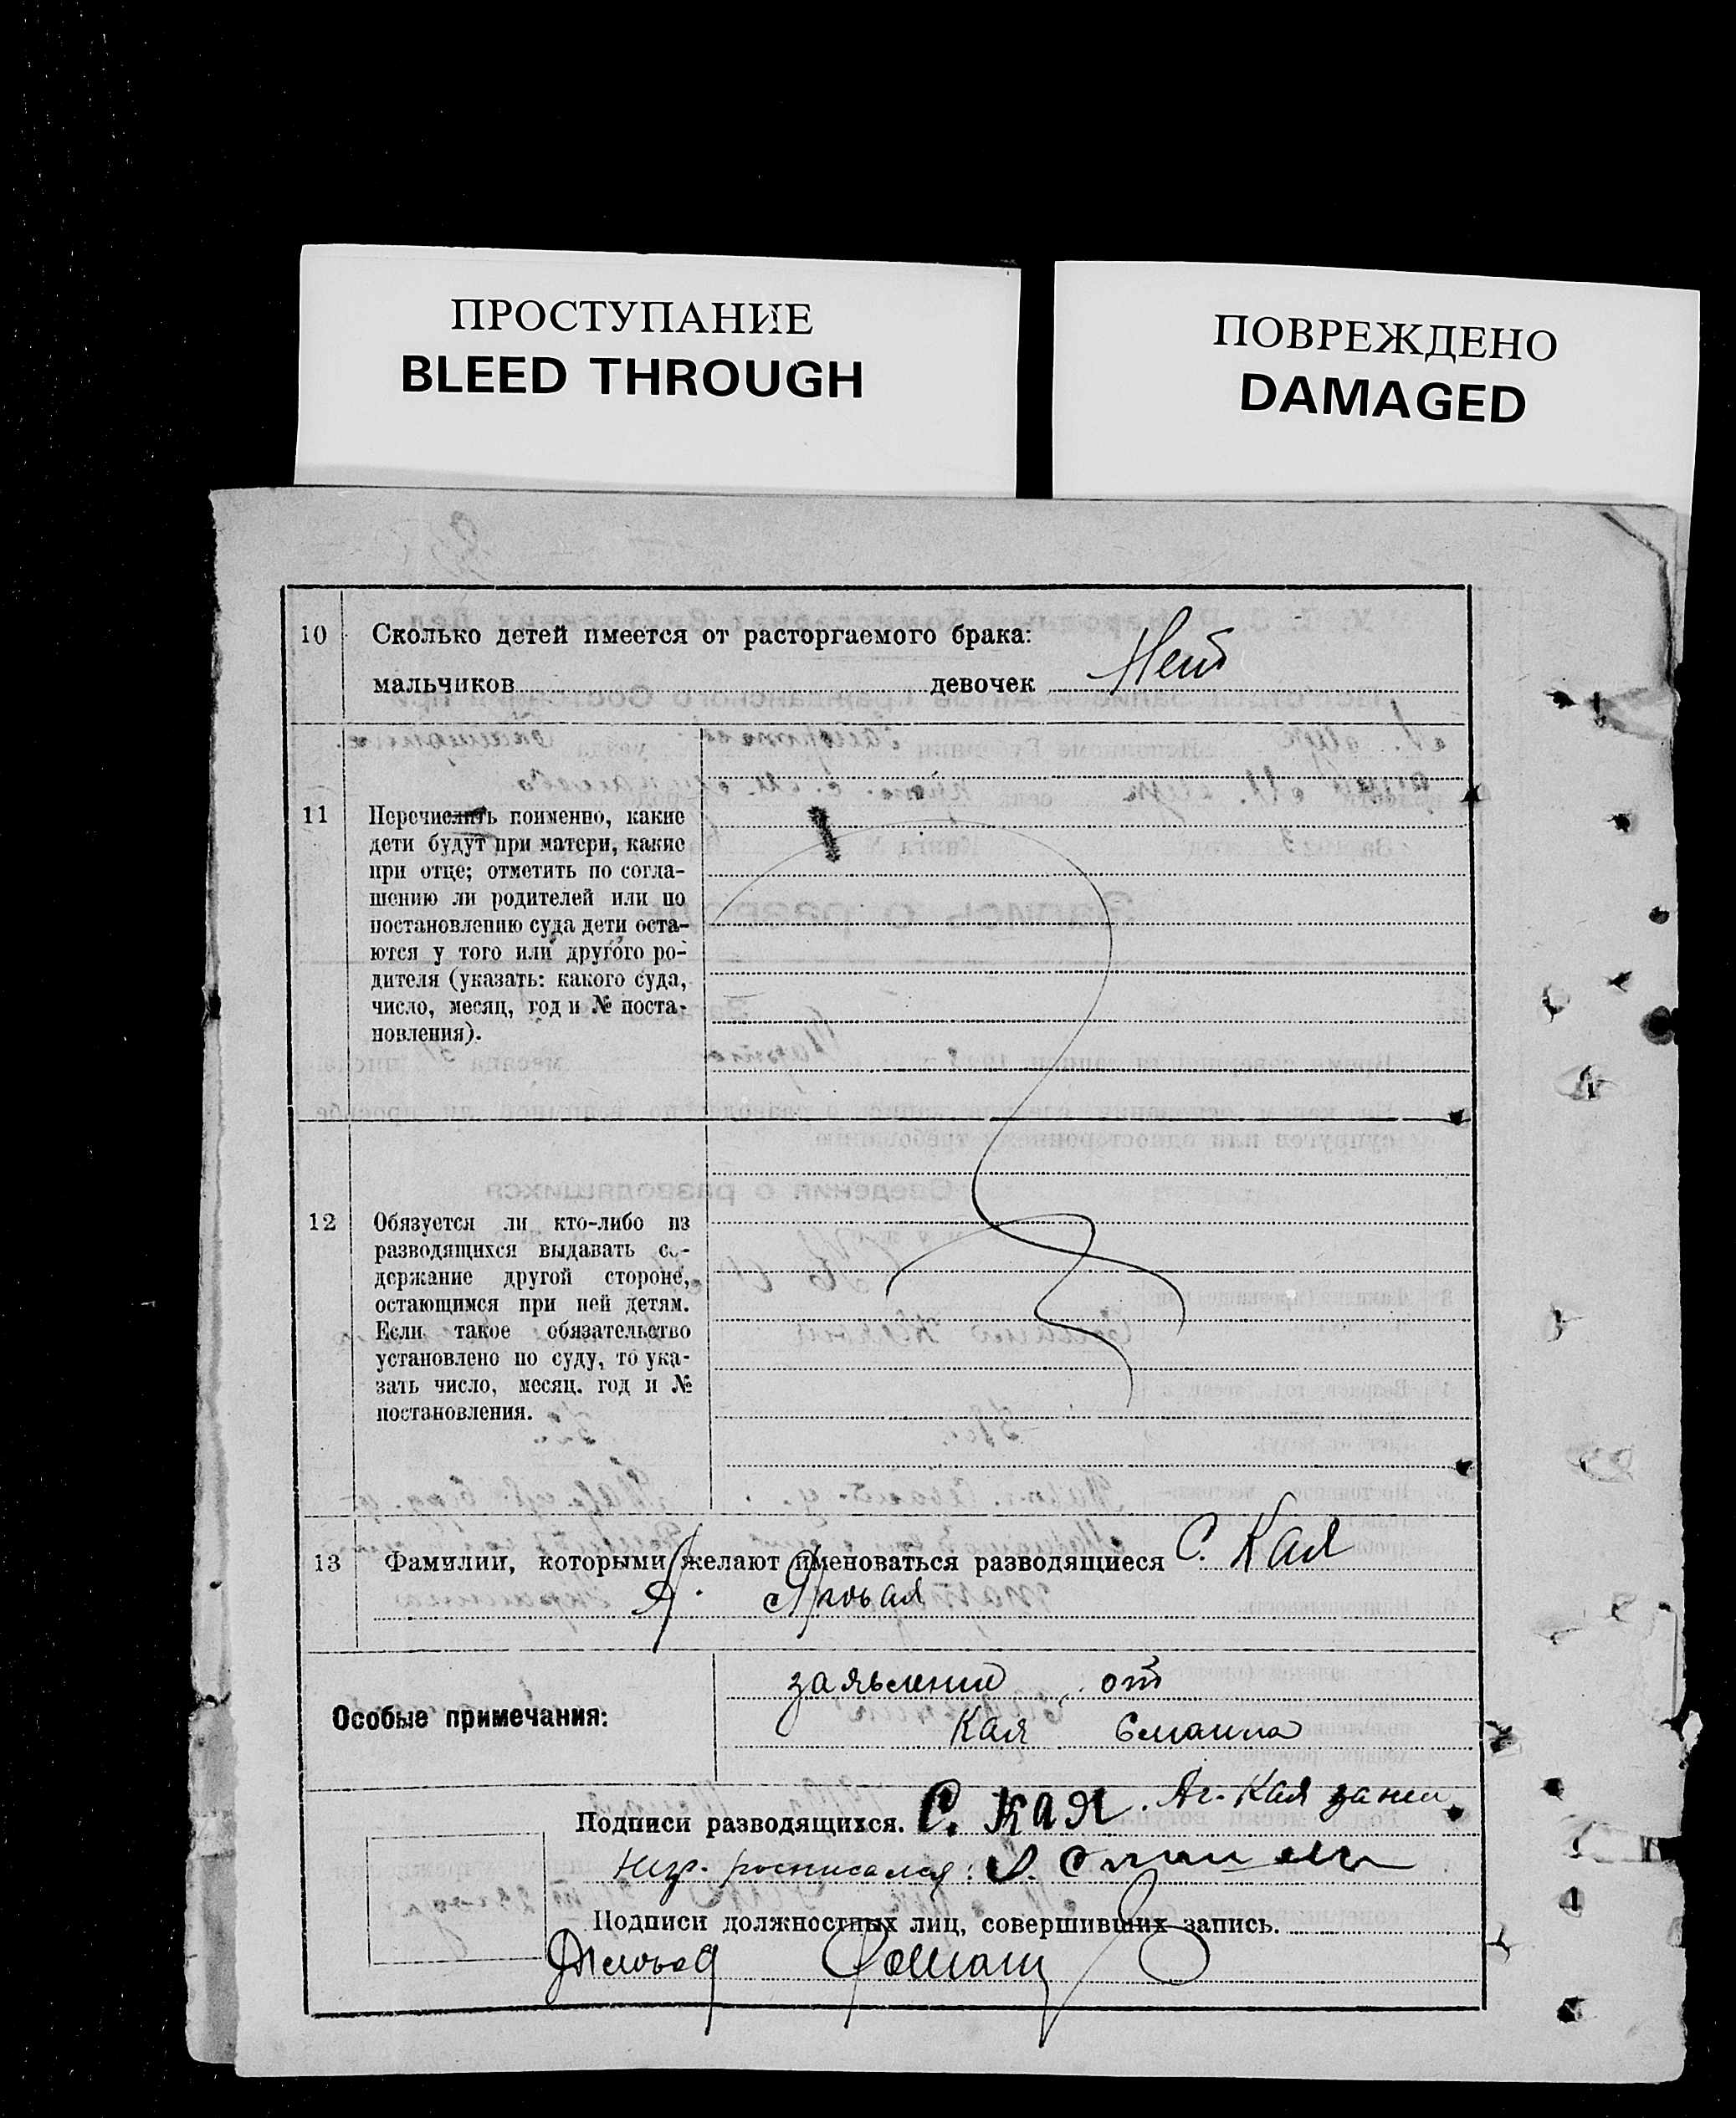 ПРОСТУПАНИЕ
BLEED THROUGH
ПОВРЕЖДЕНО
DAMAGED
10 Сколько детей имеется от расторгаемого брака:
мальчиков девочек Нет
11 Перечислить поименно, какие
дети будут при матери, какие
при отце; отметить по согла-
шению ли родителей или по
постановлению суда дети оста-
ются у того или другого ро-
дителя (указать: какого суда,
число, месяц, год и № поста-
новления).
12 Обязуется ли кто-либо из
разводящихся выдавать со-
держание другой стороне,
остающимся при ней детям.
Если такое обязательство
установлено по суду, то ука-
зать число, месяц. год и №
постановления.
13 Фамилии, которыми желают именоваться разводящиеся С. Кая
Яровая
Особые примечания:
заявление от
Кая Смаила
Подписи разводящихся. С. Кая. Аг. Кая за неи
росписался:
Подписи должностных лиц, совершивших запись.